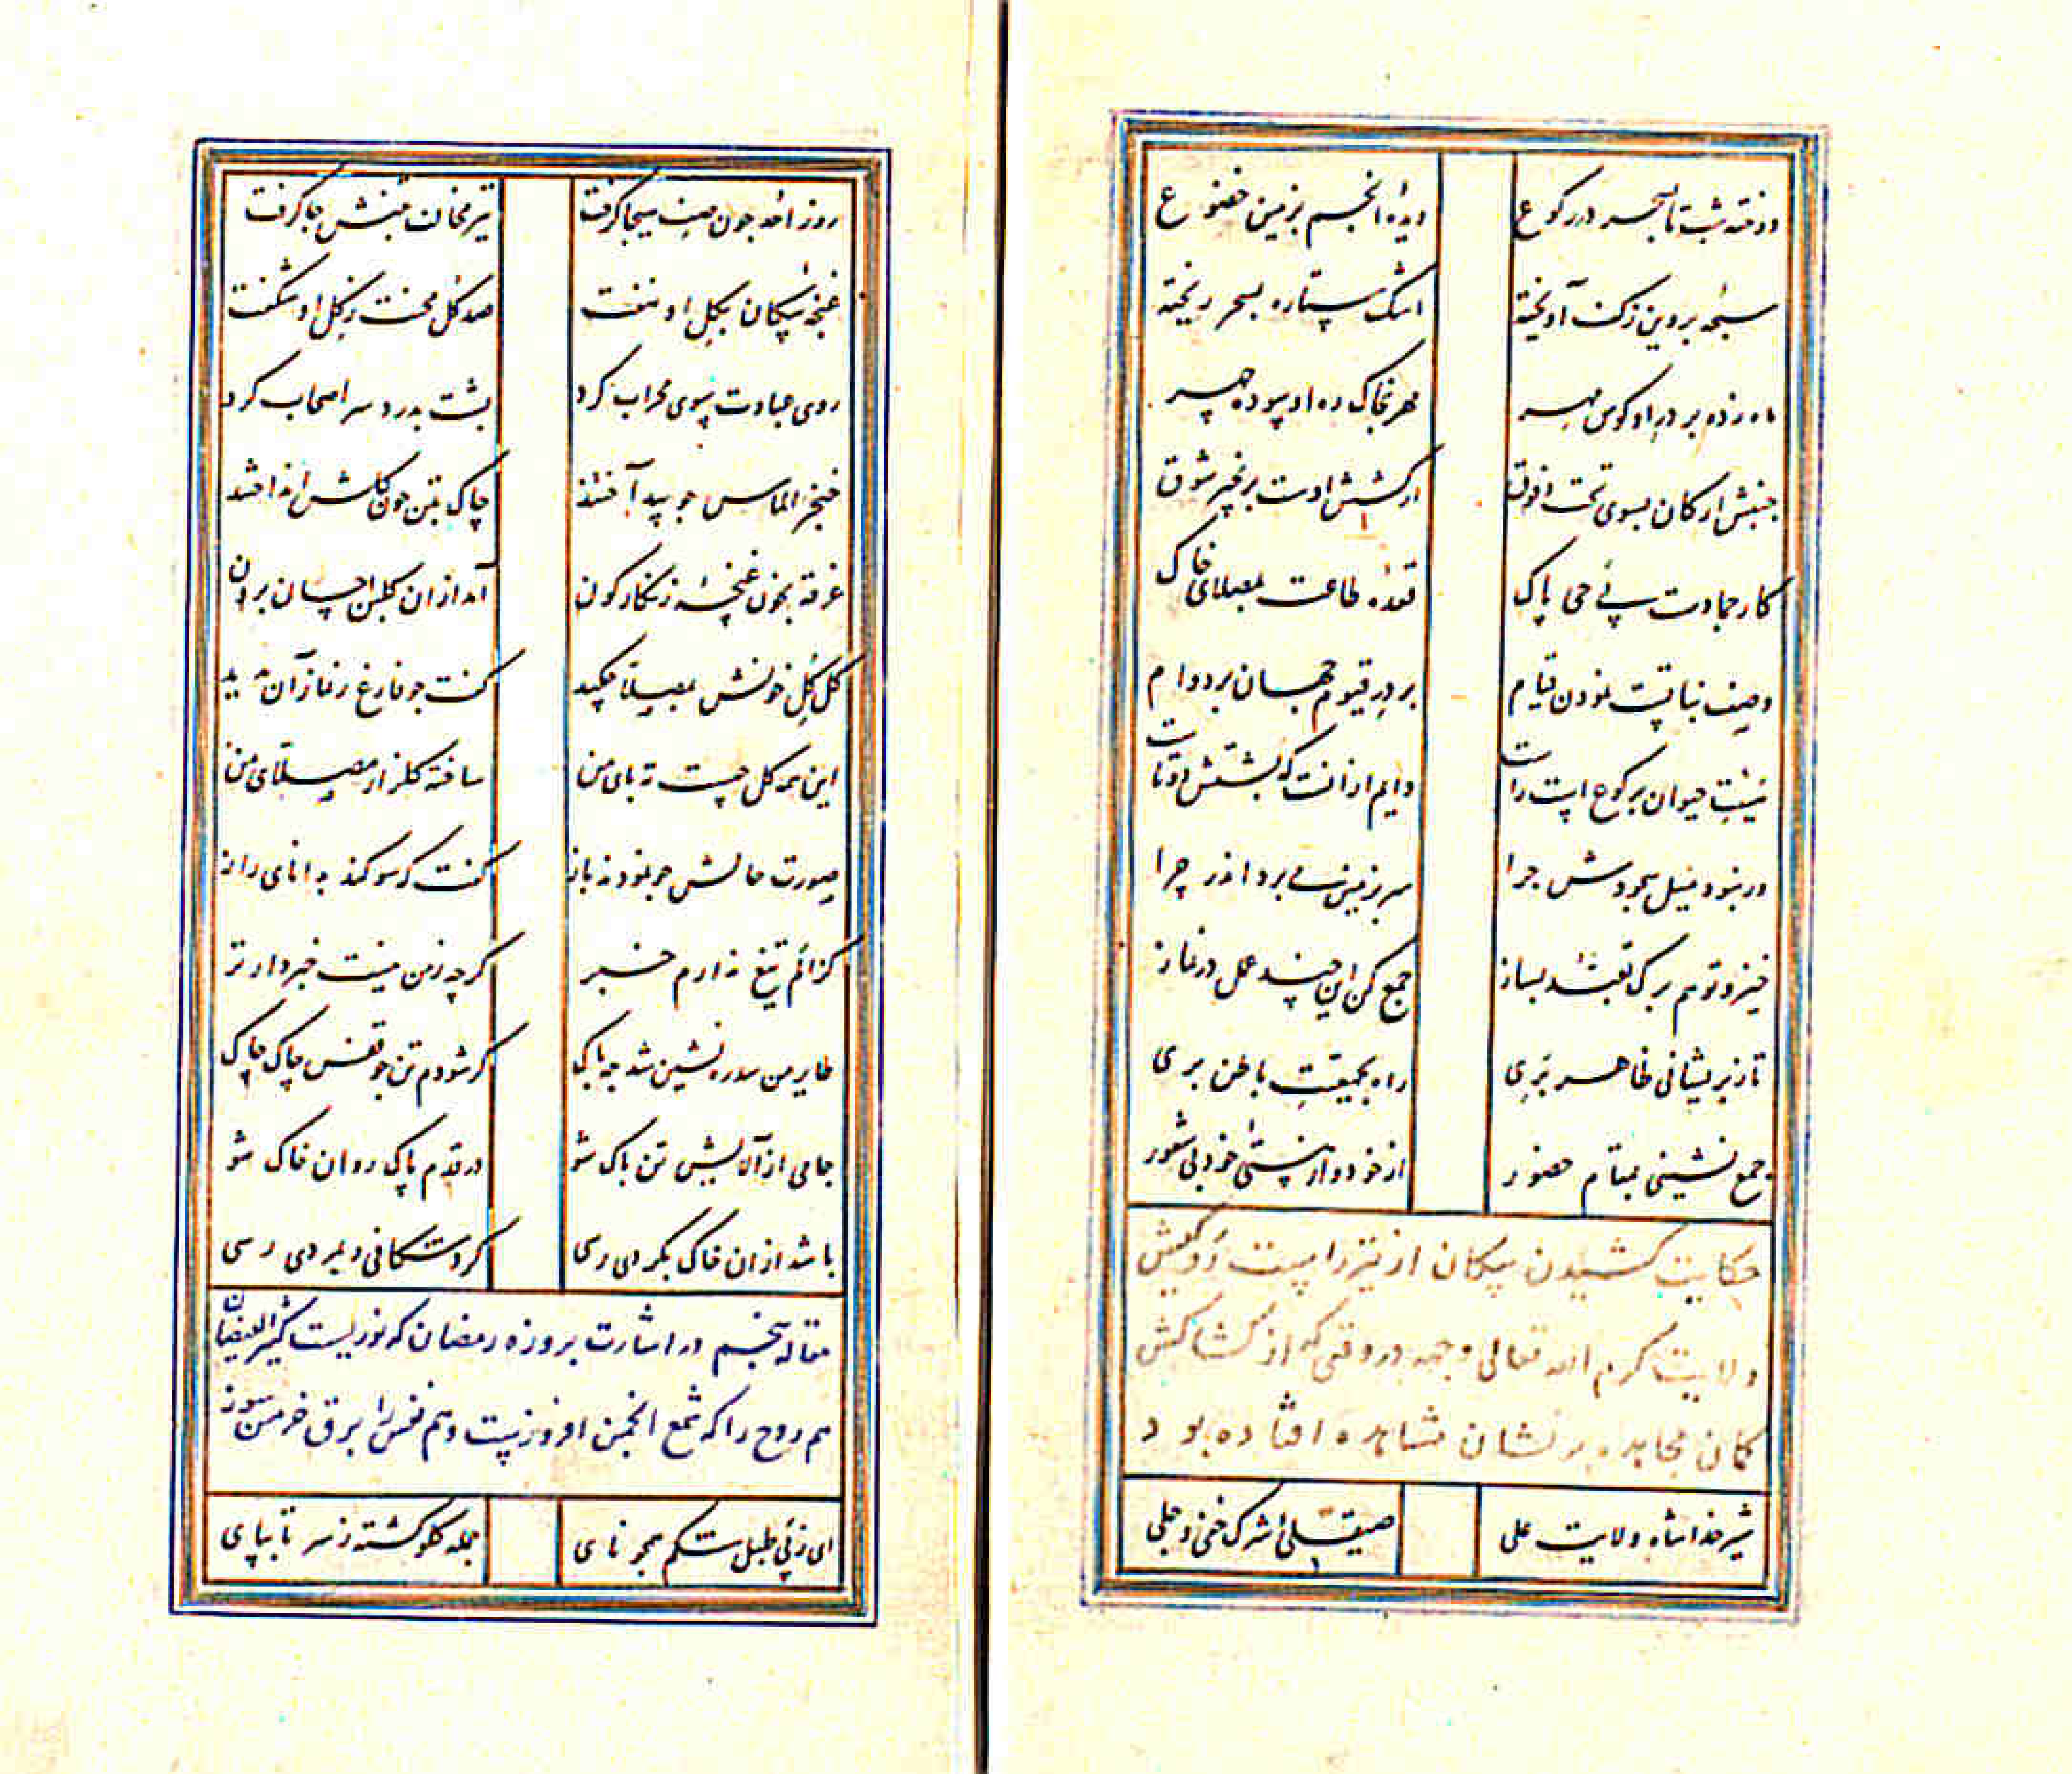 دوخته شب تا بسحر در رکوع دیدهٔ انجم بزمین خضوع
سبحه پروین ز کف آویخته اشک ستاره بسحر ریخته
ماه زده بر در او کوس مهر مهر بخاک ره او سوده چهر
جنبش ارکان بسوی تحت و فوق از کشش اوست بزنجیر شوق
کار جمادست پی حی پاک قعدهٔ طاعت بمصلای خاک
وصف نباتست نمودن قیام بر در قیوم جهان بر دوام
نیت حیوان برکوع است راست دایم ازانست که پشتش دوتاست
ور نبود میل سجودش چرا سر بزمین می برد اندر چرا
خیز و تو هم برک تعبد بساز جمع کن این چند عمل در نماز
تا ز پریشانی ظاهر بری راه بجمعیت باطن بری
جمع نشینی بمقام حضور از خود و از هستی خود بی شعور
حکایت کشیدن پیکان از تیر راست رو کیش
ولایت کرم الله تعالی وجهه در وقتی که از کشاکش
کمان مجاهده بر نشان مشاهده افتاده بود
شیر خدا شاه ولایت علی صیقلی شرک خفی و جلی
روز احد چون صف هیجا گرفت تیر مخالف بتنش جا گرفت
غنچهٔ پیکان بگل او نهفت صد گل محنت ز گل او شکفت
روی عبادت سوی محراب کرد پشت بدرد سر اصحاب کرد
خنجر الماس چو بید آختند چاک بتن چون گلش انداختند
غرقه بخون غنچهٔ زنگارگون آمد ازان گلبن احسان برون
گل گل خونش بمصلا چکید گفت چو فارغ ز نماز آن بدید
این همه گل چیست ته پای من ساخته گلزار مصلای من
صورت حالش چو نمودند باز گفت که سوگند بدانای راز
کز الم تیغ ندارم خبر گرچه ز من نیست خبردارتر
طایر من سدره نشین شد چه باک گر شودم تن چو قفس چاک چاک
جامی از آلایش تن پاک شو در قدم پاک روان خاک شو
باشد ازان خاک بگردی رسی گرد شکافی و بمردی رسی
مقاله پنجم در اشارت بروزه رمضان که نوریست کثیر الفیضان
هم روح را که شمع انجمن افروزیست وهم نفس را برق خرمن سوز
ای ز پی طبل شکم همچو نای جمله گلو گشته ز سر تا بپای